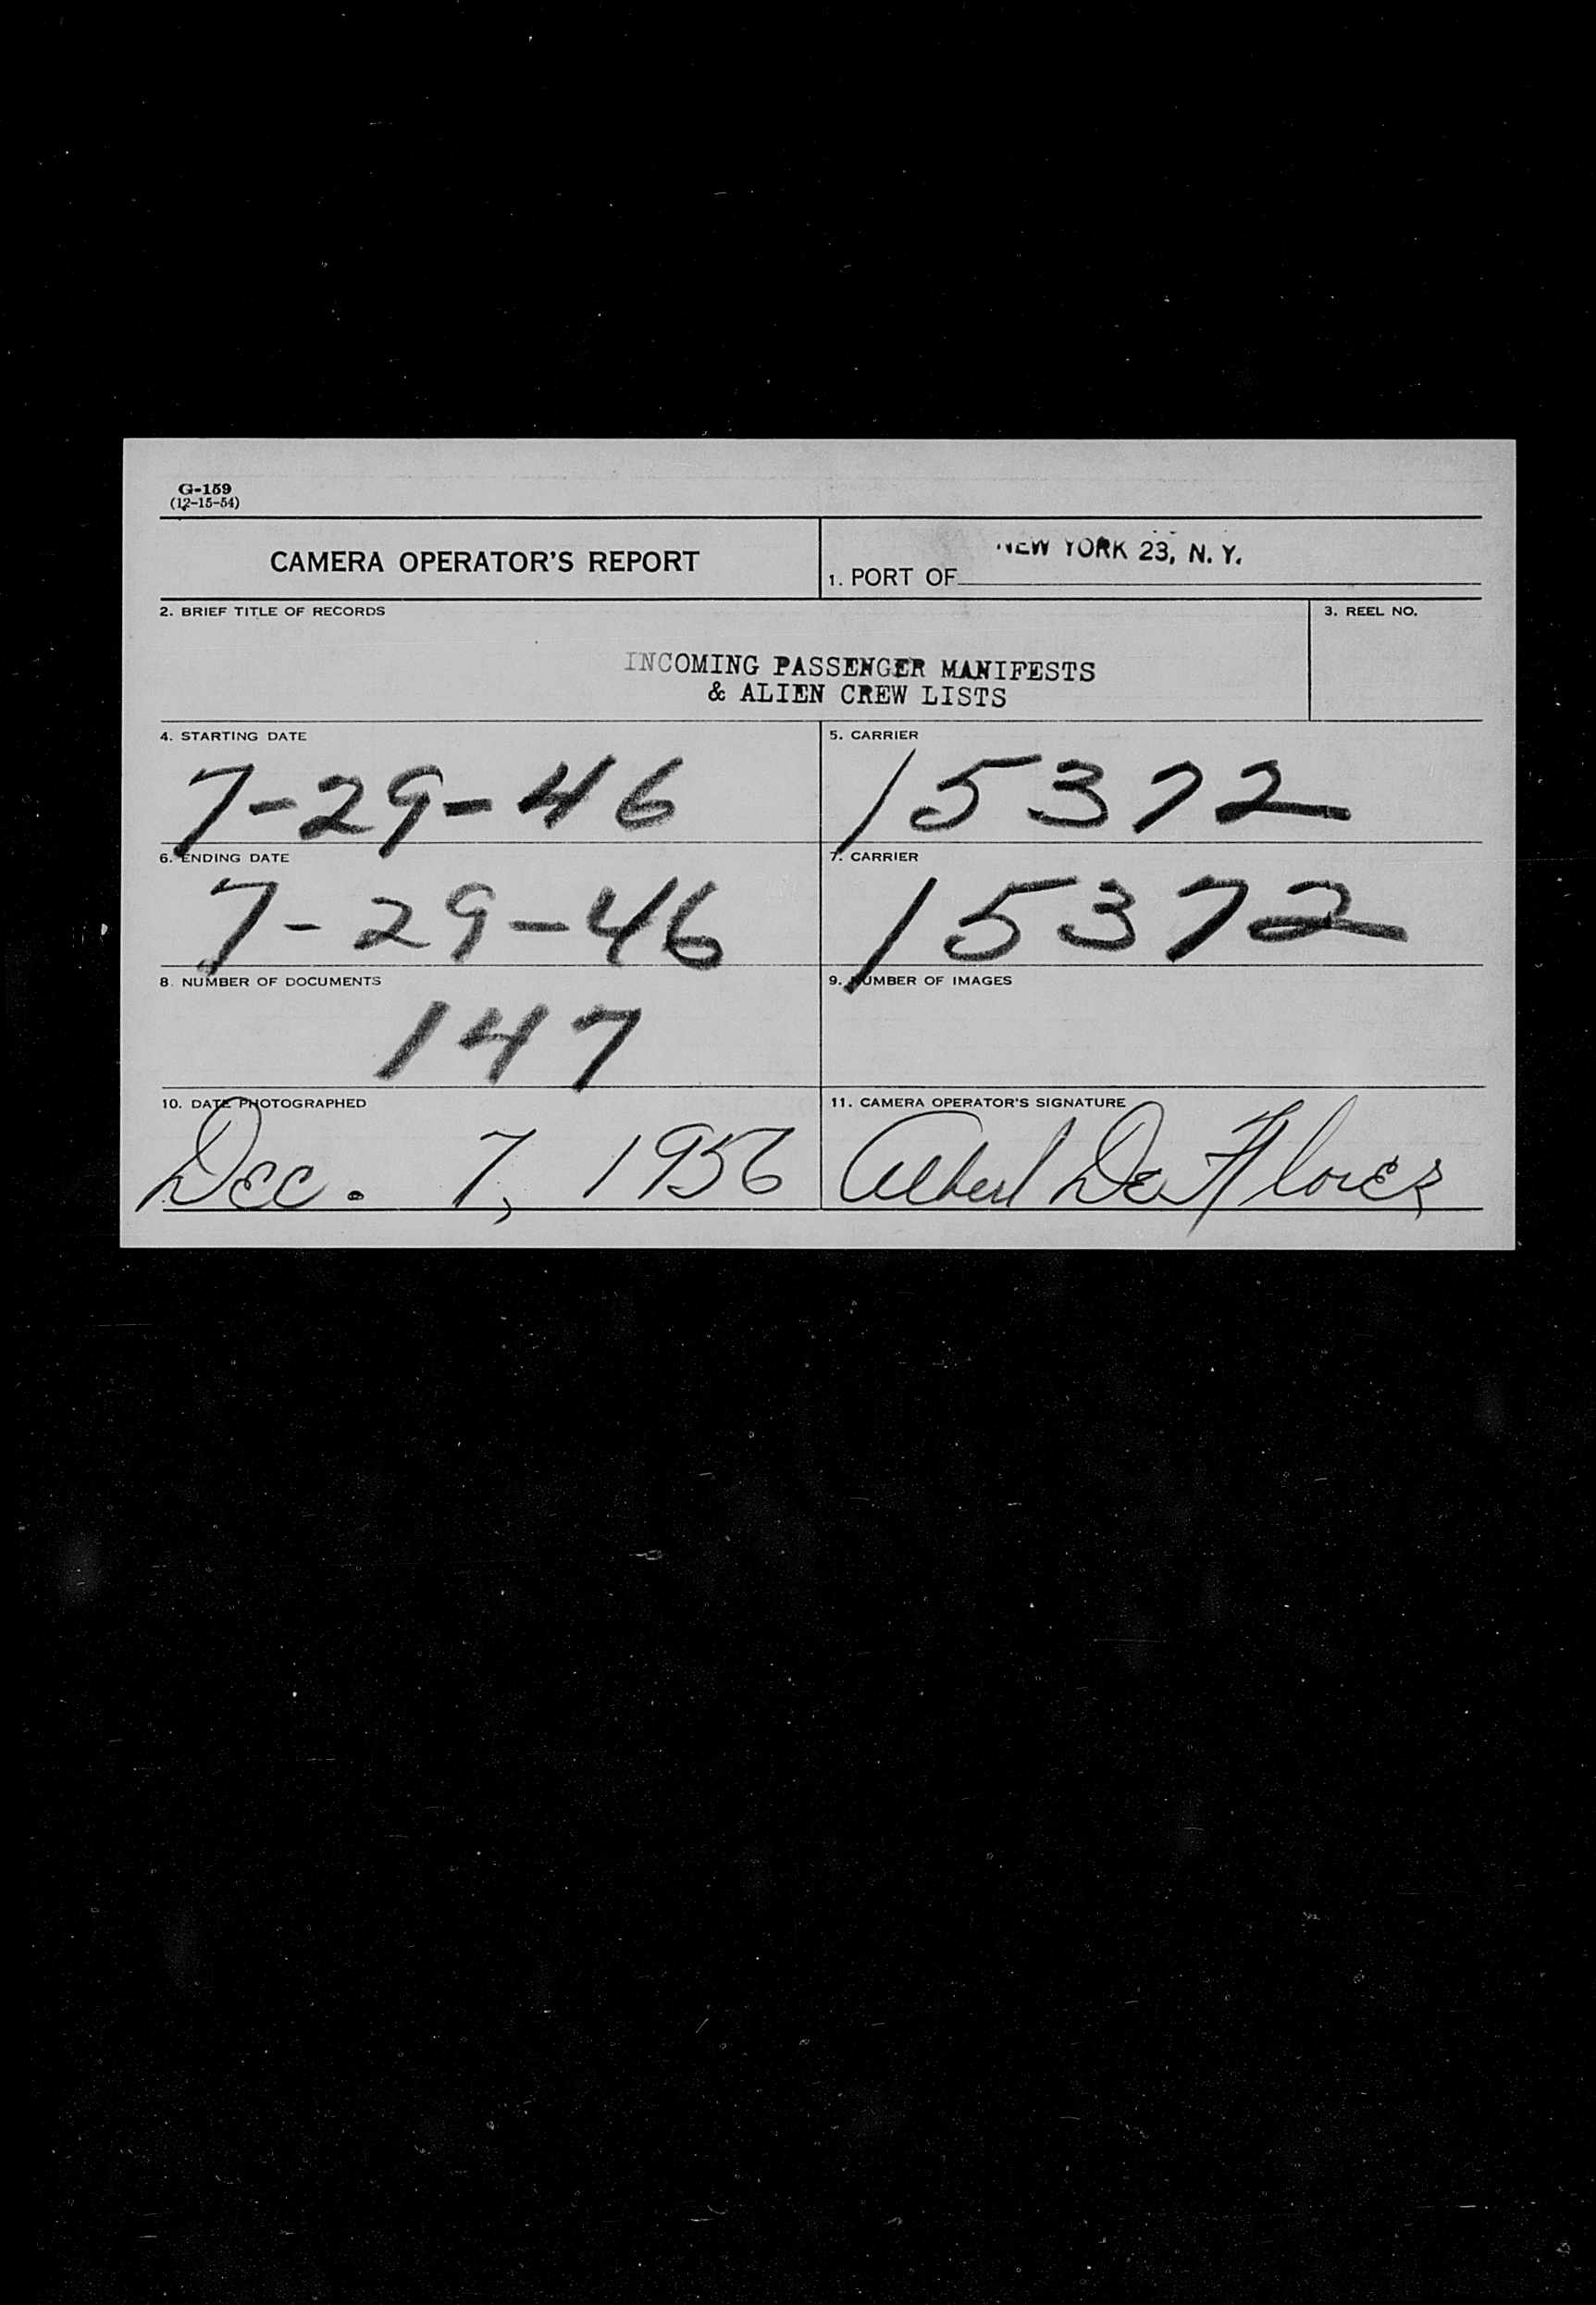 G-159
(12-15-54)
CAMERA OPERATOR'S REPORT
1. PORT OF NEW YORK 23, N. Y.
2. BRIEF TITLE OF RECORDS
3. REEL NO.
INCOMING PASSENGER MANIFESTS
& ALIEN CREW LISTS
4. STARTING DATE
7-29-46
5. CARRIER
15372
6. ENDING DATE
7-29-46
7. CARRIER
15372
8. NUMBER OF DOCUMENTS
147
9. NUMBER OF IMAGES
10. DATE PHOTOGRAPHED
Dec. 7, 1956
11. CAMERA OPERATOR'S SIGNATURE
Albert De Flores